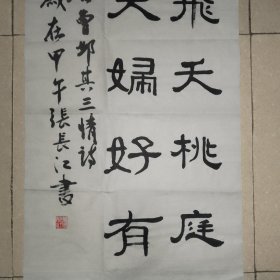 飛夭桃庭
婦好有
曹邺其三情詩
歲在甲午張長江書